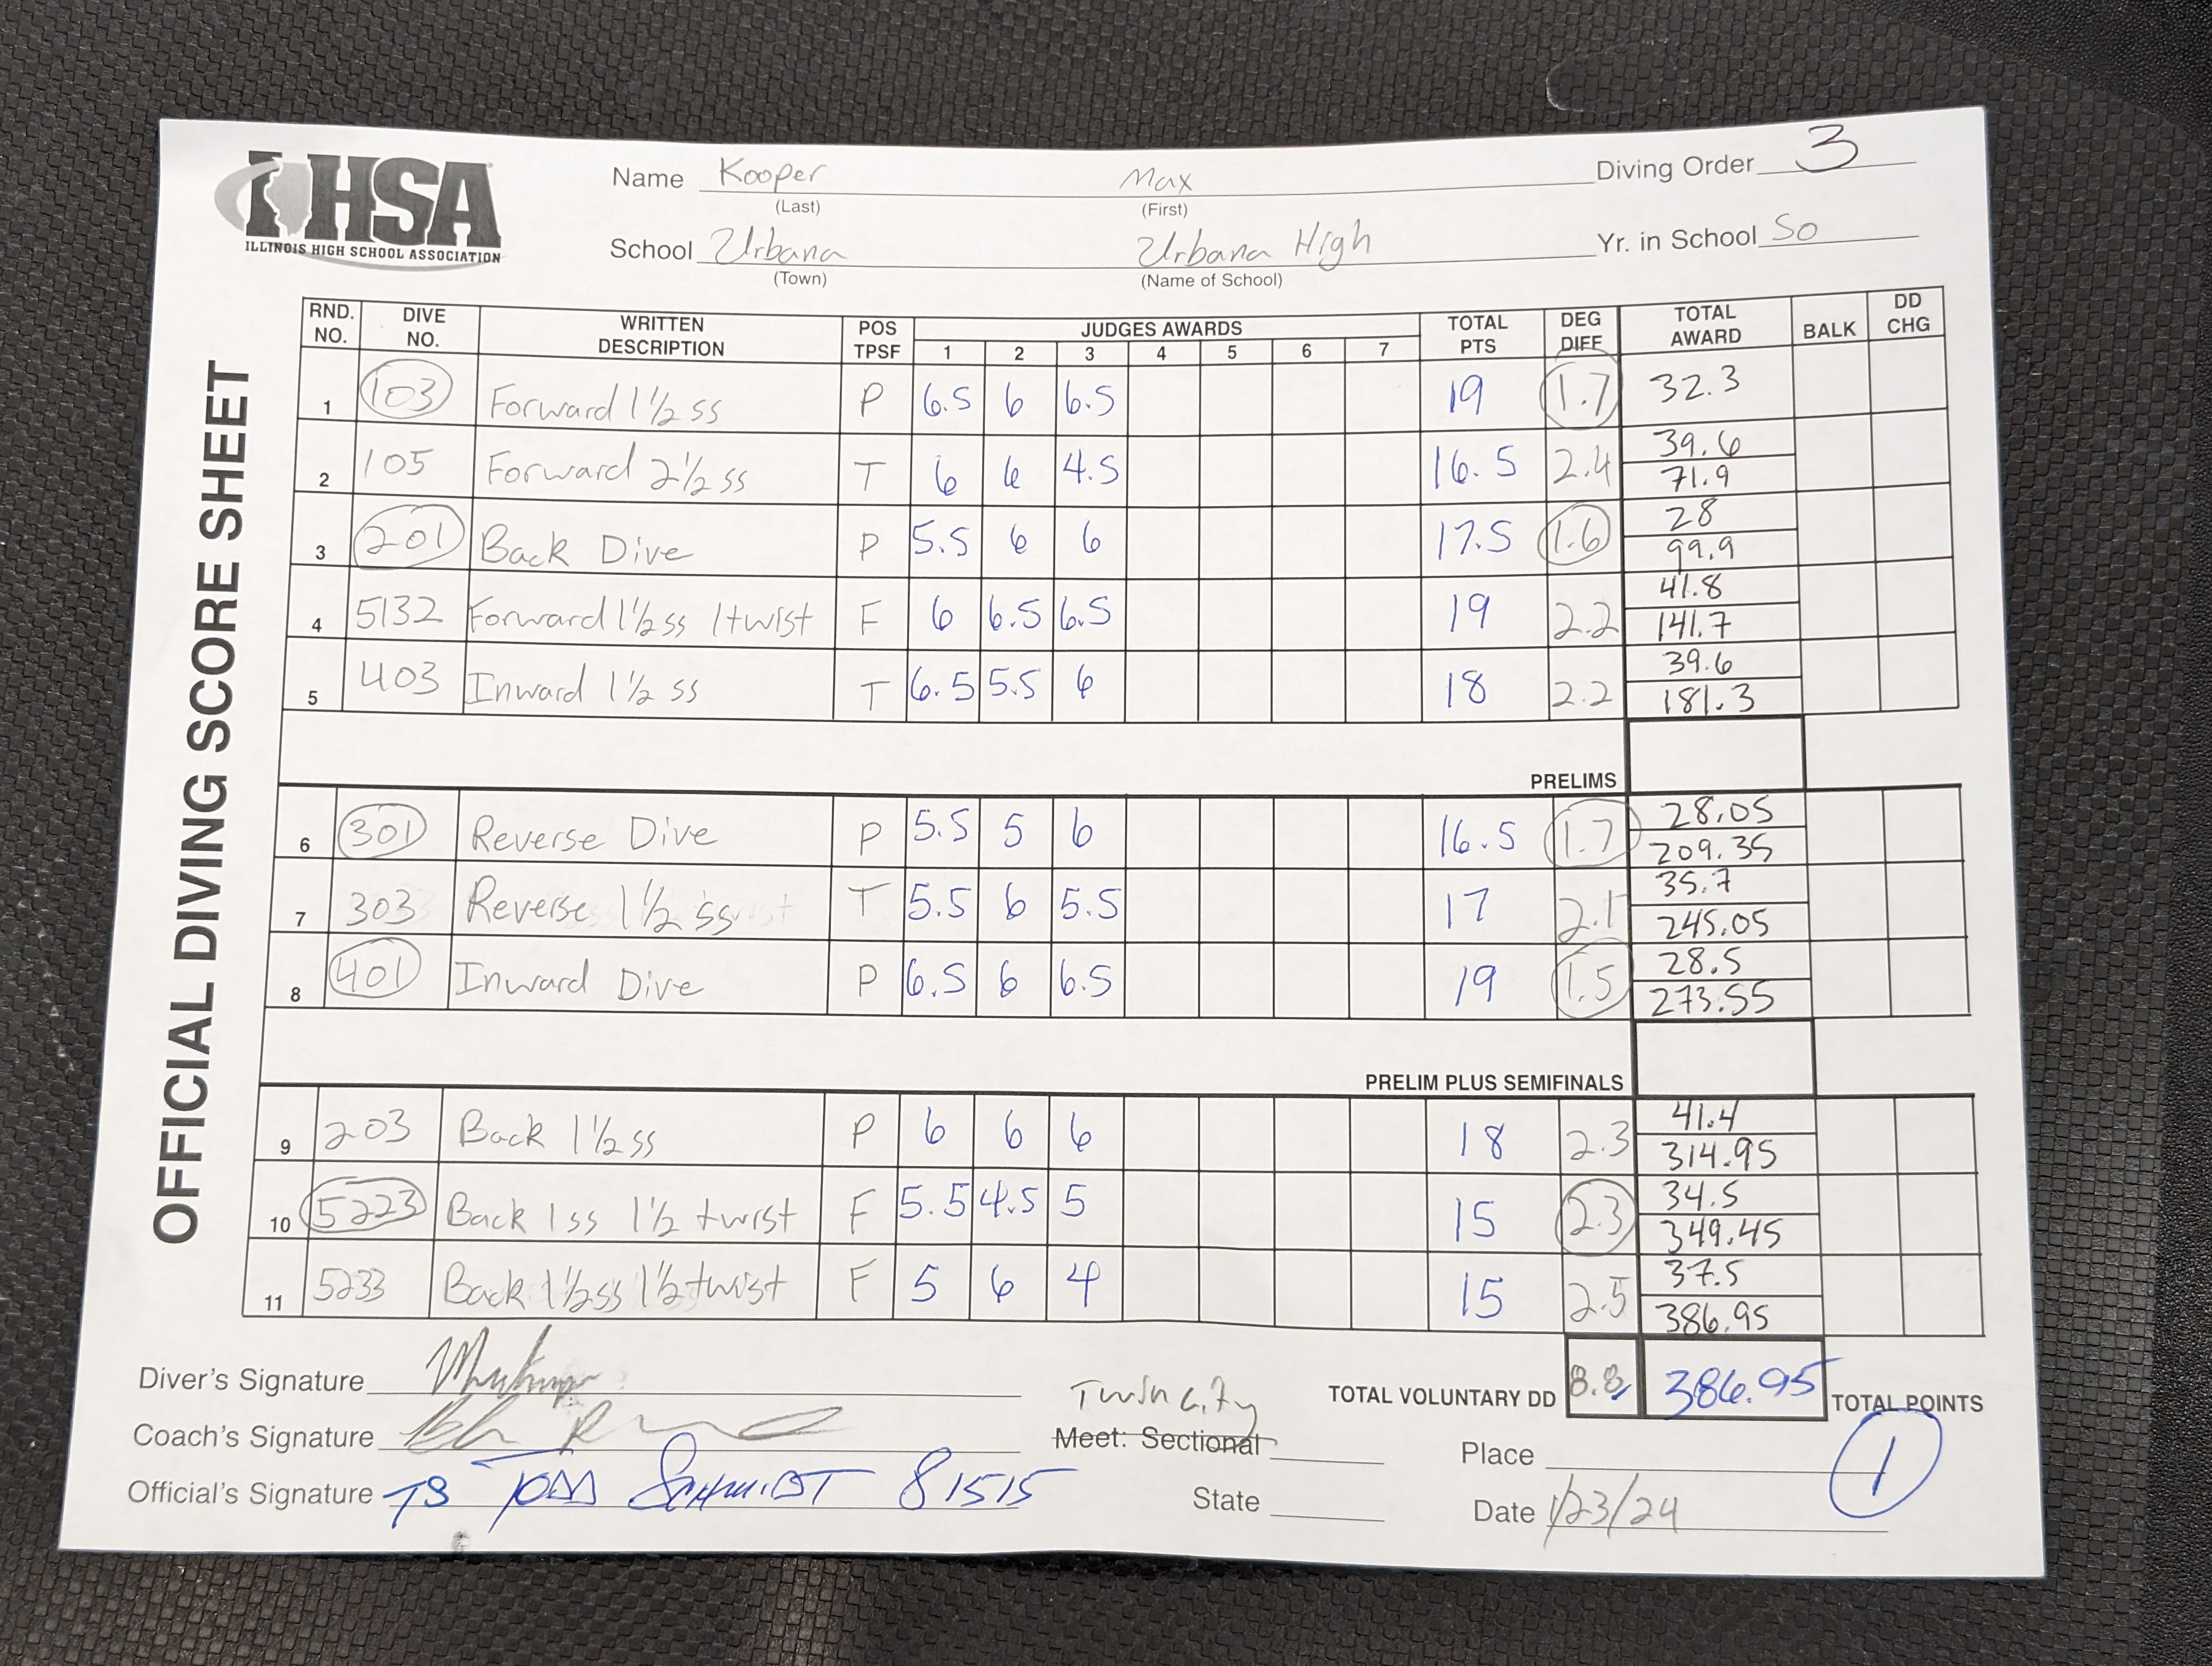 IHSA
ILLINOIS HIGH SCHOOL ASSOCIATION
OFFICIAL DIVING SCORE SHEET
Name Kooper Max Diving Order 3
(Last) (First)
School Urbana Urbana High Yr. in School So
(Town) (Name of School)
RND. NO. DIVE NO. WRITTEN DESCRIPTION POS TPSF JUDGES AWARDS 1 2 3 4 5 6 7 TOTAL PTS DEG DIFF TOTAL AWARD BALK DD CHG
1 103 Forward 1½ ss P 6.5 6 6.5 19 1.7 32.3
2 105 Forward 2½ ss T 6 6 4.5 16.5 2.4 39.6 71.9
3 201 Back Dive P 5.5 6 6 17.5 1.6 28 99.9
4 5132 Forward 1½ ss 1 twist F 6 6.5 6.5 19 2.2 41.8 141.7
5 403 Inward 1½ ss T 6.5 5.5 6 18 2.2 39.6 181.3
PRELIMS
6 301 Reverse Dive P 5.5 5 6 16.5 1.7 28.05 209.35
7 303 Reverse 1½ ss T 5.5 6 5.5 17 2.1 35.7 245.05
8 401 Inward Dive P 6.5 6 6.5 19 1.5 28.5 273.55
PRELIM PLUS SEMIFINALS
9 203 Back 1½ ss P 6 6 6 18 2.3 41.4 314.95
10 5223 Back 1 ss 1½ twist F 5.5 4.5 5 15 2.3 34.5 349.45
11 5233 Back 1½ ss 1½ twist F 5 6 4 15 2.5 37.5 386.95
TOTAL VOLUNTARY DD 8.8 386.95 TOTAL POINTS
Diver's Signature
Twin City
Coach's Signature Meet: Sectional Place 1
Official's Signature TS TODD SCHMIDT 81515 State Date 1/23/24